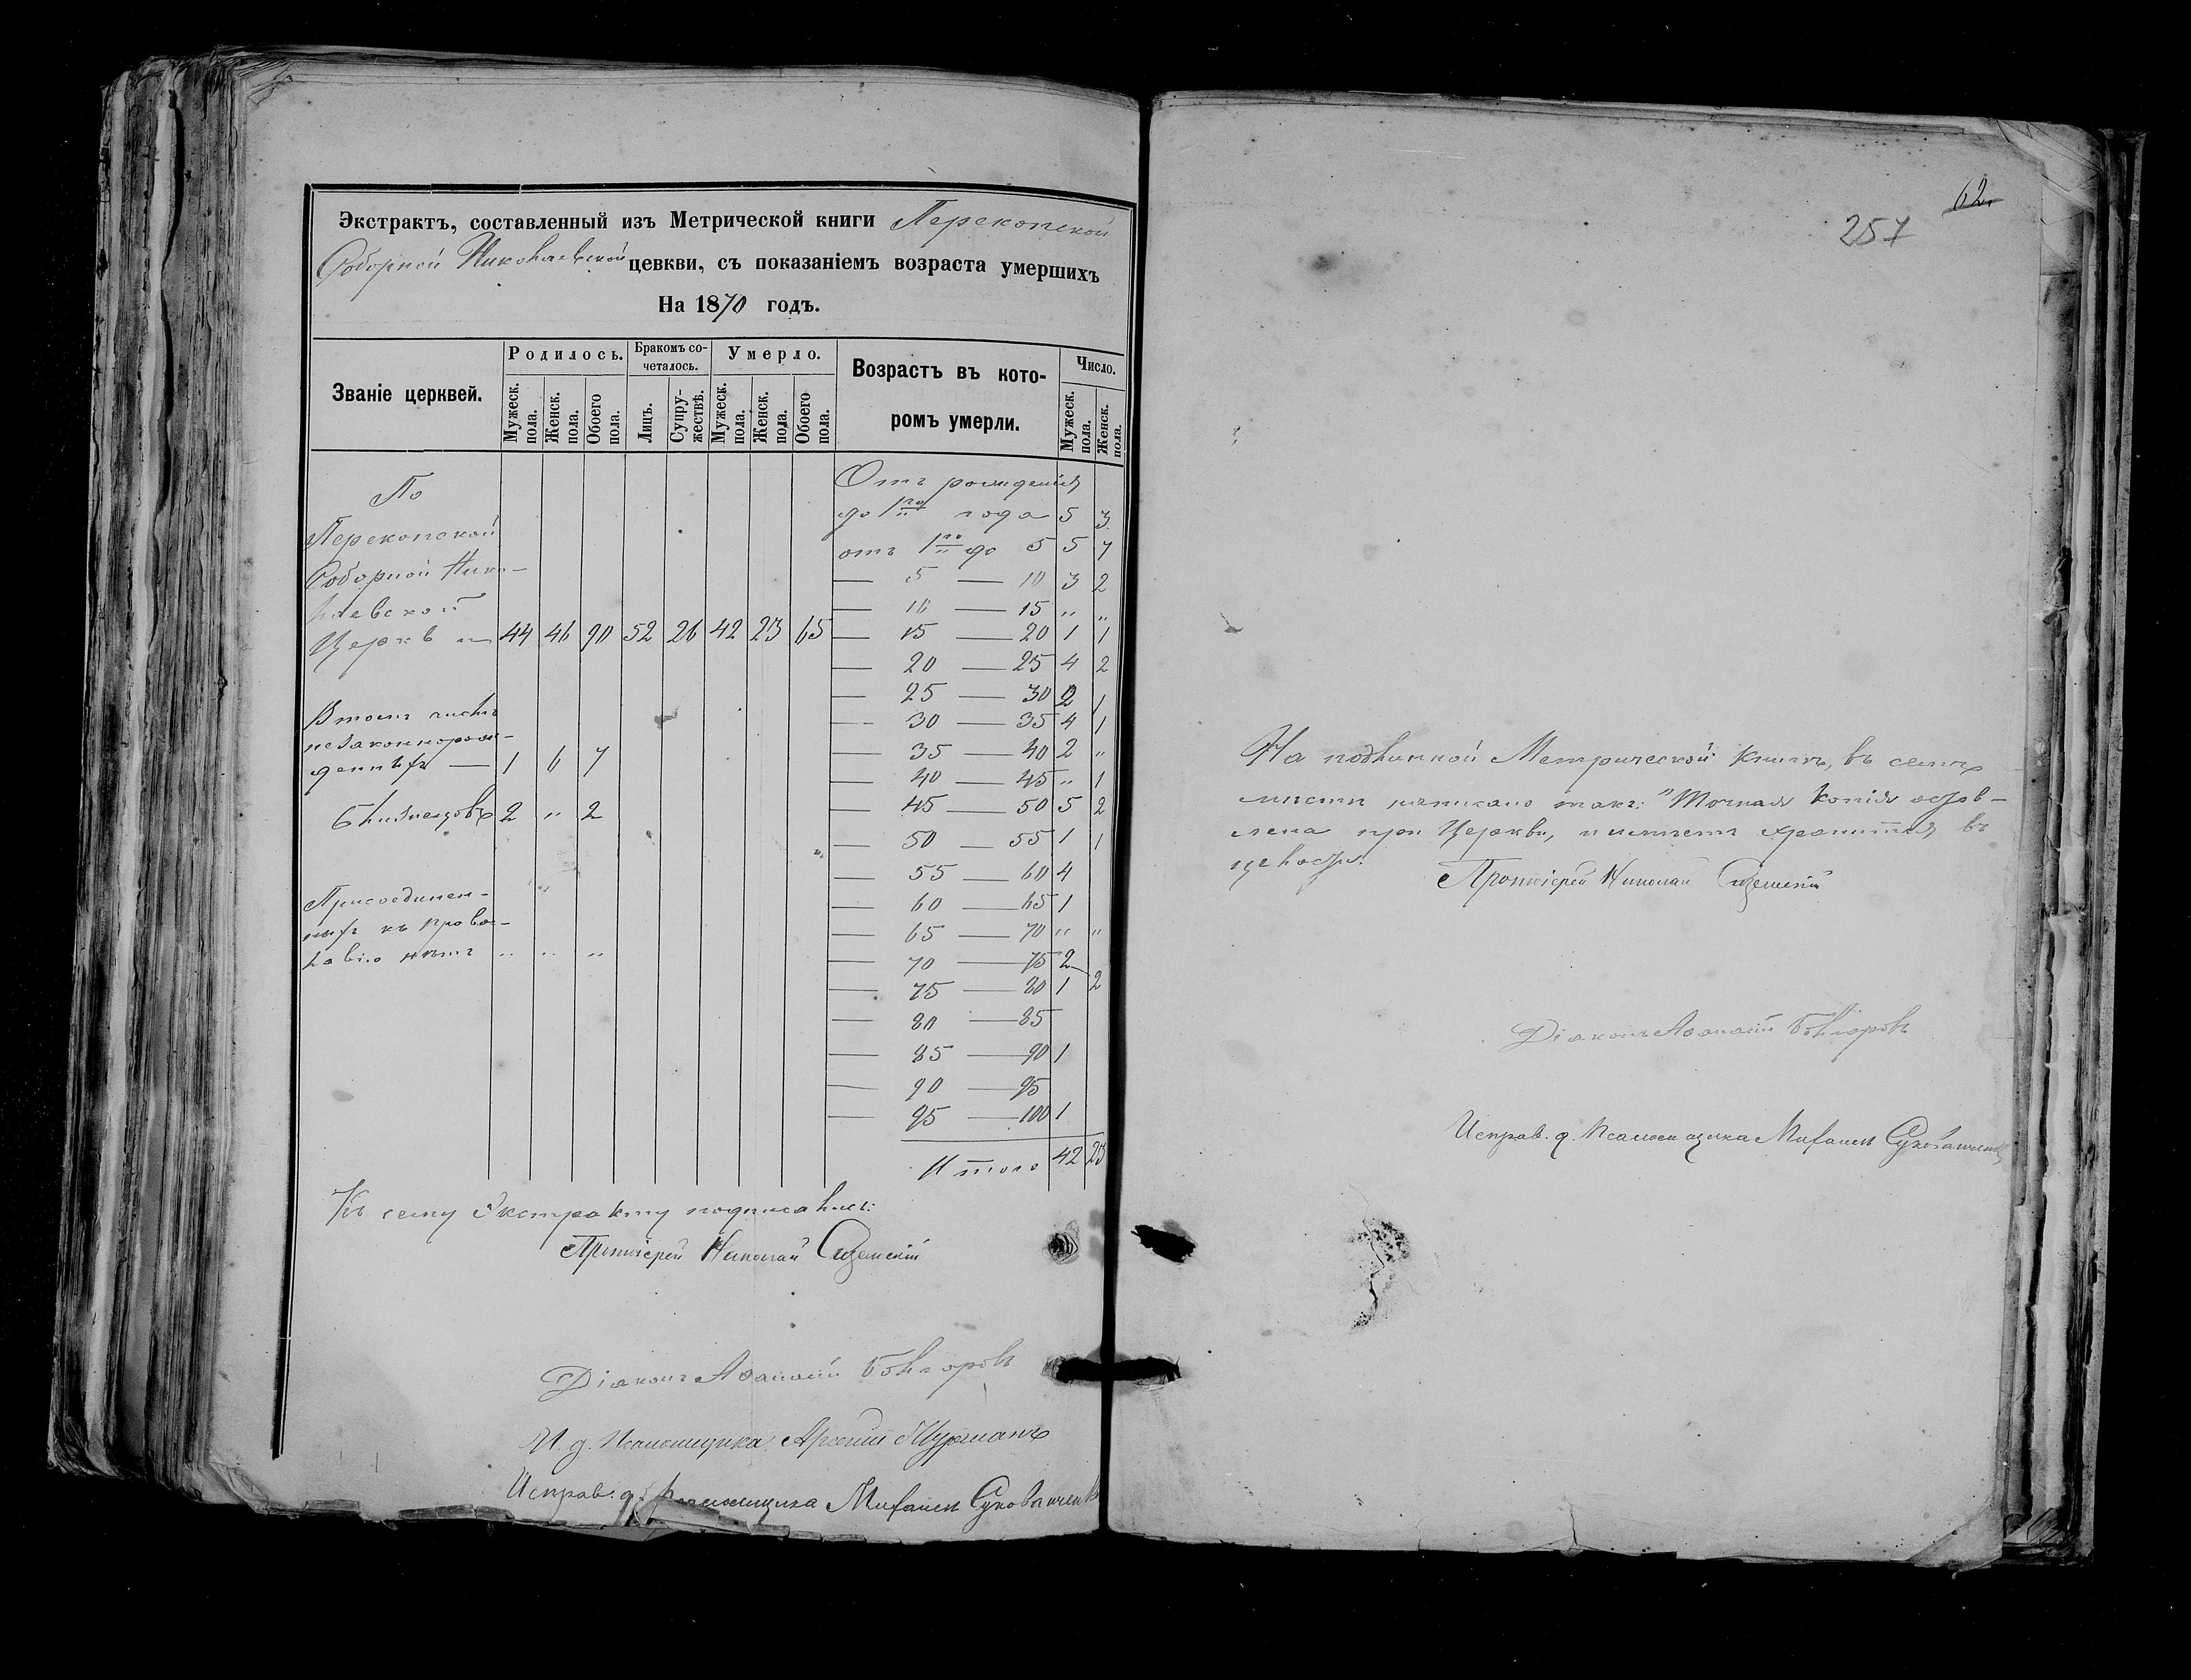 Экстрактъ, составленный изъ Метрической книги Перекопской
Соборной Николаевской цевкви, съ показаніемъ возраста умершихъ
На 1870 годъ.
Званіе церквей.
Родилось.
Бракомъ сочеталось.
Умерло.
Возрастъ въ которомъ умерли.
Число.
Мужеск. пола.
Женск. пола.
Обоего пола.
Лицъ.
Супружествъ.
Мужеск. пола.
Женск. пола.
Обоего пола.
Мужеск. пола.
Женск. пола.
По
Перекопской
Соборной Нико-
лаевской
Церкви 44 46 90 52 26 42 23 65
В томъ числѣ
незаконнорож-
денныхъ — 1 6 7
Близнецовъ 2 " 2
Присоединен-
ныхъ къ право-
славію нѣтъ " " "
Отъ рожденія
до 1го года 5 3
отъ 1го до 5 5 7
— 5 — 10 3 2
— 10 — 15 " "
— 15 — 20 1 1
— 20 — 25 4 2
— 25 — 30 2 1
— 30 — 35 4 1
— 35 — 40 2 "
— 40 — 45 " 1
— 45 — 50 5 2
— 50 — 55 1 1
— 55 — 60 4
— 60 — 65 1
— 65 — 70 " "
— 70 — 75 2
— 75 — 80 1 2
— 80 — 85
— 85 — 90 1
— 90 — 95
— 95 — 100 1
Итого 42 23
Къ сему Экстракту подписались:
Протоіерей Николай
Діаконъ Аѳанасій Болгаровъ
И. д. Псаломщика Арсеній
Исправ. д. Псаломщика Михаилъ
62.
257
На подлинной Метрической Книгѣ, въ семъ
мѣстѣ написано такъ: "Точная Копія остав-
лена при Церкви, и имѣетъ хранится въ
целости.
Протоіерей Николай
Діаконъ Аѳанасій Болгаровъ
Исправ. д. Псаломщика Михаилъ